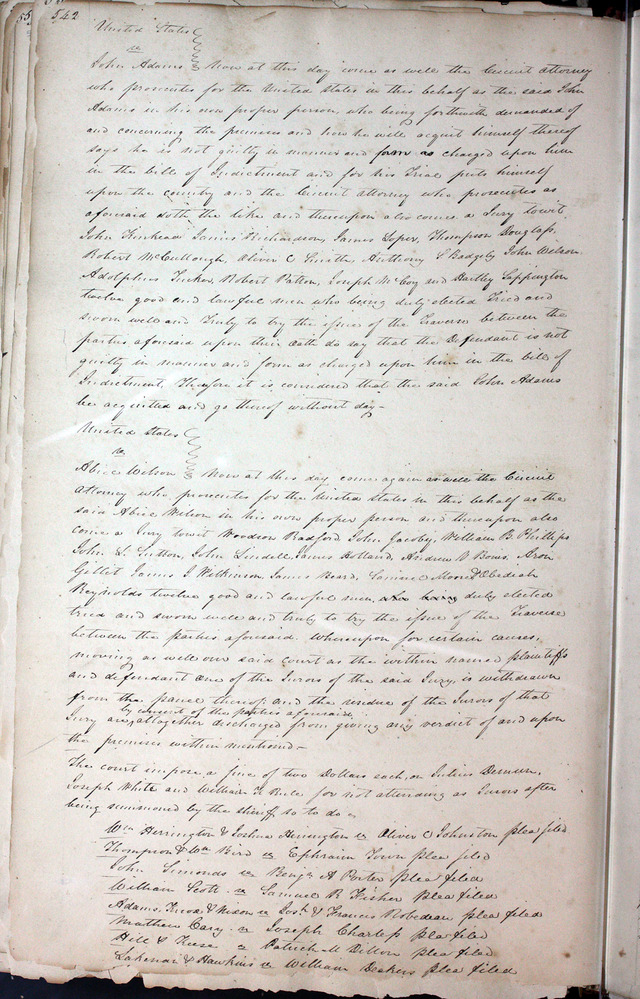 542
United States
vs
John Adams Now at this day come as well the Circuit attorney
who prosecutes for the United States in this behalf as the said John
Adams in his own proper person, who being forthwith demanded of
and concerning the premises and how he will acquit himself thereof
says he is not guilty in manner and form as charged upon him
in the bill of Indictment and for his Trial puts himself
upon the country and the Circuit attorney who prosecutes as
aforesaid doth the like and thereupon also comes a Jury towit
John Kinkead James Richardson, James Loper, Thompson Douglass,
Robert McCullough, Oliver C Smith, Anthony C Badgely John Wilson
Adolphus Tucker, Robert Patton, Joseph McCoy and Hartley Sappington
twelve good and lawful men who being duly elected Tried and
sworn well and Truly to try the issue of the Traverse between the
parties aforesaid upon their oath do say that the Defendant is not
guilty in manner and form as charged upon him in the bill of
Indictment. Therefore it is considered that the said John Adams
be acquitted and go thereof without day-
United States
vs
Wilson Now at this day come again as well the Circuit
attorney who prosecutes for the United States in this behalf as the
said Wilson in his own proper person and thereupon also
come a Jury towit Woodson Radford John Jacoby, William B Phillips
John L Sutton, John Lindell, James Holland, Andrew Aron
Gillet James J Wilkinson, James Beard, Samuel Moore & Obediah
Reynolds twelve good and lawful men, who being duly elected
tried and sworn well and truly to try the issue of the Traverse
between the parties aforesaid. Whereupon for certain causes,
moving as well our said court as the within named plaintiffs
and defendant one of the Jurors of the said Jury, is withdrawn
from the panel thereof; and the residue of the Jurors of that
by consent of the parties aforesaid
Jury are altogether discharged from giving any verdict of and upon
the premises within mentioned-
The court impose a fine of two Dollars each, on Julius Demun,
Joseph White and William K Rule for not attending as Jurors after
being summoned by the sheriff so to do-
Wm Herrington & Joshua Herrington vs Oliver C Johnston plea filed
Thompson & Wm Bird vs Ephraim Town plea filed
John Simonds vs Benjn A Porter plea filed
William Scott vs Samuel R Fisher plea filed
Adams, Knox & Nixon vs Josh & Francis Robedeau plea filed
Matthew Cary vs Joseph Charless plea filed
Hill & vs Patrick M Dillon plea filed
& Hawkins vs William Deakers plea filed